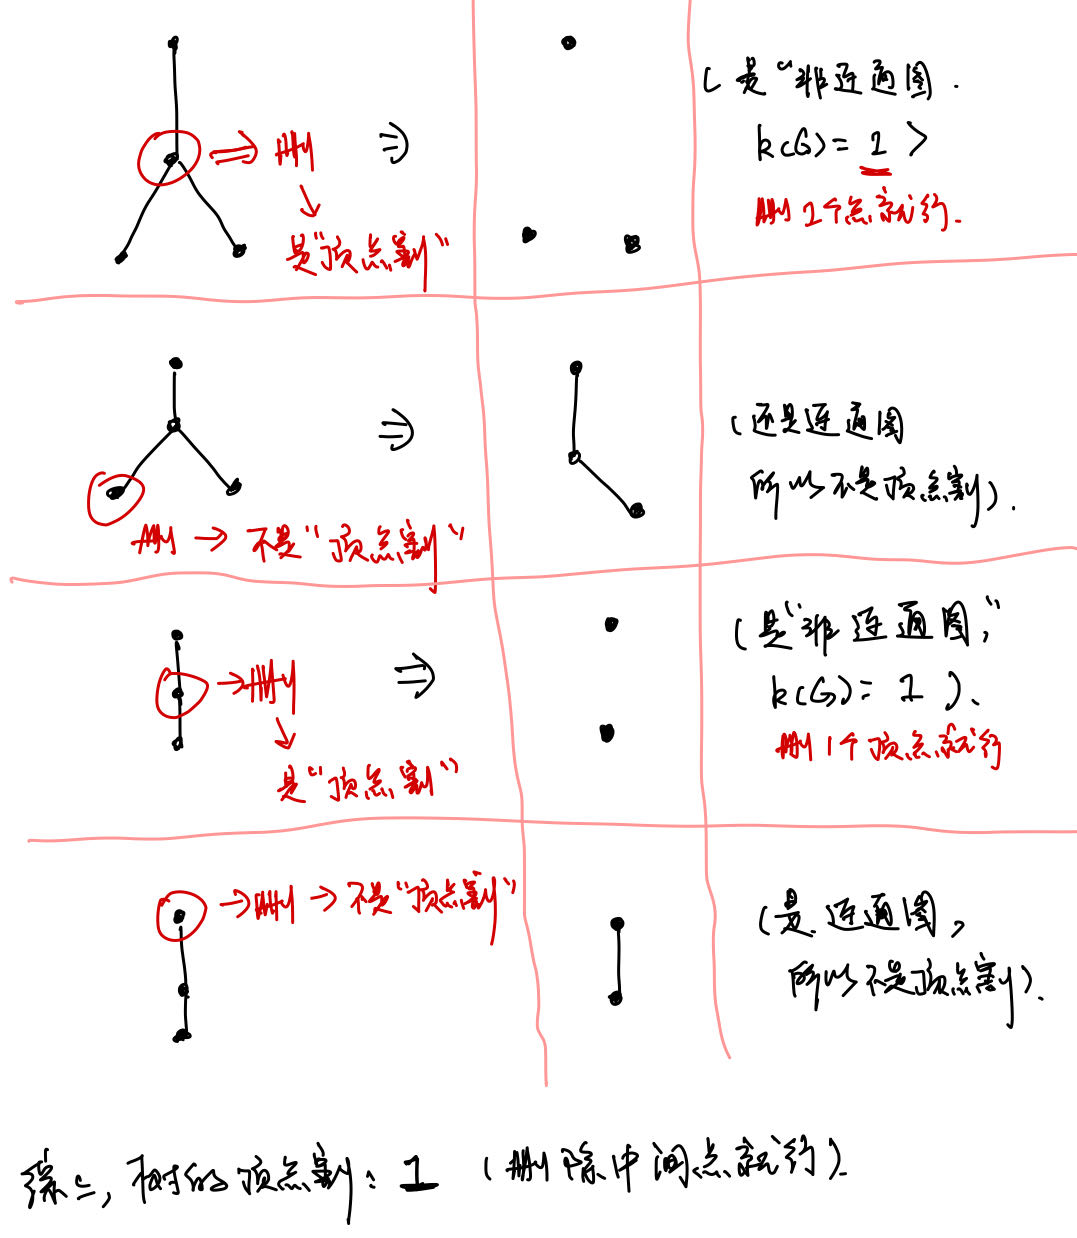 删
是“顶点割”
(是“非连通图.
k(G)= 1 >
删1个点就行.
删 → 不是“顶点割”
(还是连通图
所以不是顶点割).
删
是“顶点割”
(是“非连通图,”
k(G)= 1 ).
删1个顶点就行
删 → 不是“顶点割”
(是.连通图,
所以不是顶点割).
综上, 树的顶点割: 1 (删除中间点就行).